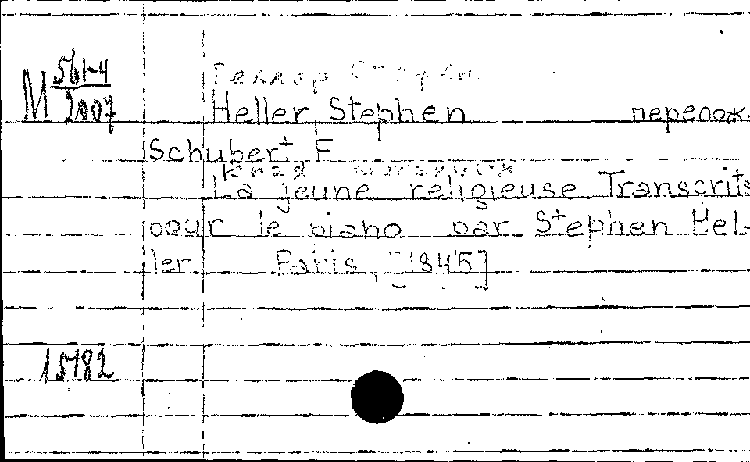 М 561-4
2007
Геллер Стефен
Heller Stephen перелож.
Schubert F
La jeune religieuse Transcrits
pour le piano par Stephen Hel-
ler. Paris, [1845]
15182